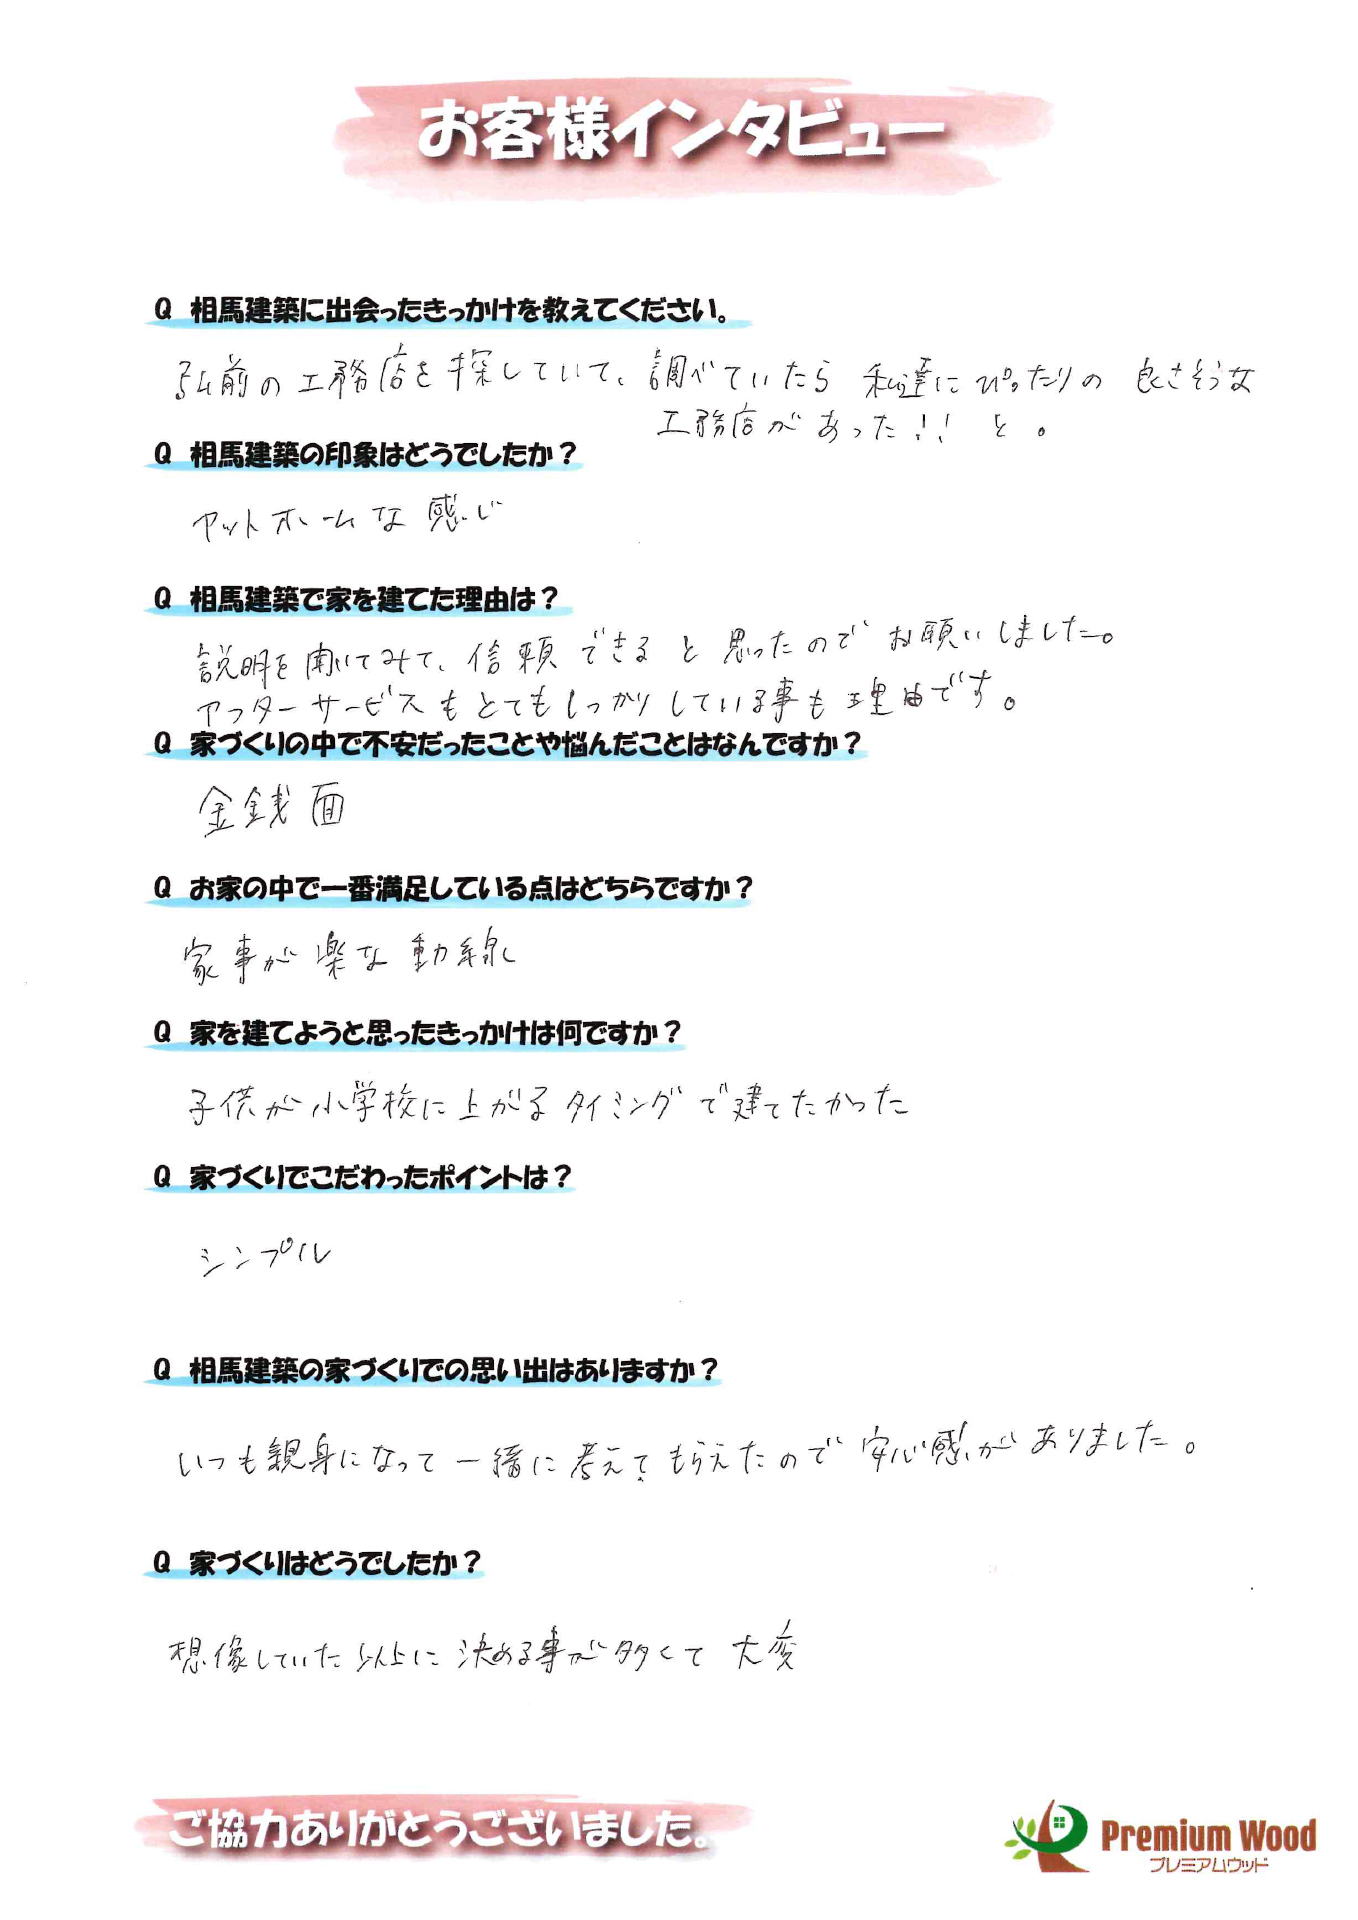 お客様インタビュー
Q 相馬建築に出会ったきっかけを教えてください。
弘前の工務店を探していて、調べていたら 私達にぴったりの 良さそうな
工務店があった!! と。
Q 相馬建築の印象はどうでしたか？
アットホームな感じ
Q 相馬建築で家を建てた理由は？
説明を聞いてみて、信頼できると思ったのでお願いしました。
アフターサービスもとてもしっかりしている事も理由です。
Q 家づくりの中で不安だったことや悩んだことはなんですか？
金銭面
Q お家の中で一番満足している点はどちらですか？
家事が楽な動線
Q 家を建てようと思ったきっかけは何ですか？
子供が小学校に上がるタイミングで建てたかった
Q 家づくりでこだわったポイントは？
シンプル
Q 相馬建築の家づくりでの思い出はありますか？
いつも親身になって一緒に考えてもらえたので安心感がありました。
Q 家づくりはどうでしたか？
想像していた以上に決める事が多くて 大変
ご協力ありがとうございました。
Premium Wood
プレミアムウッド